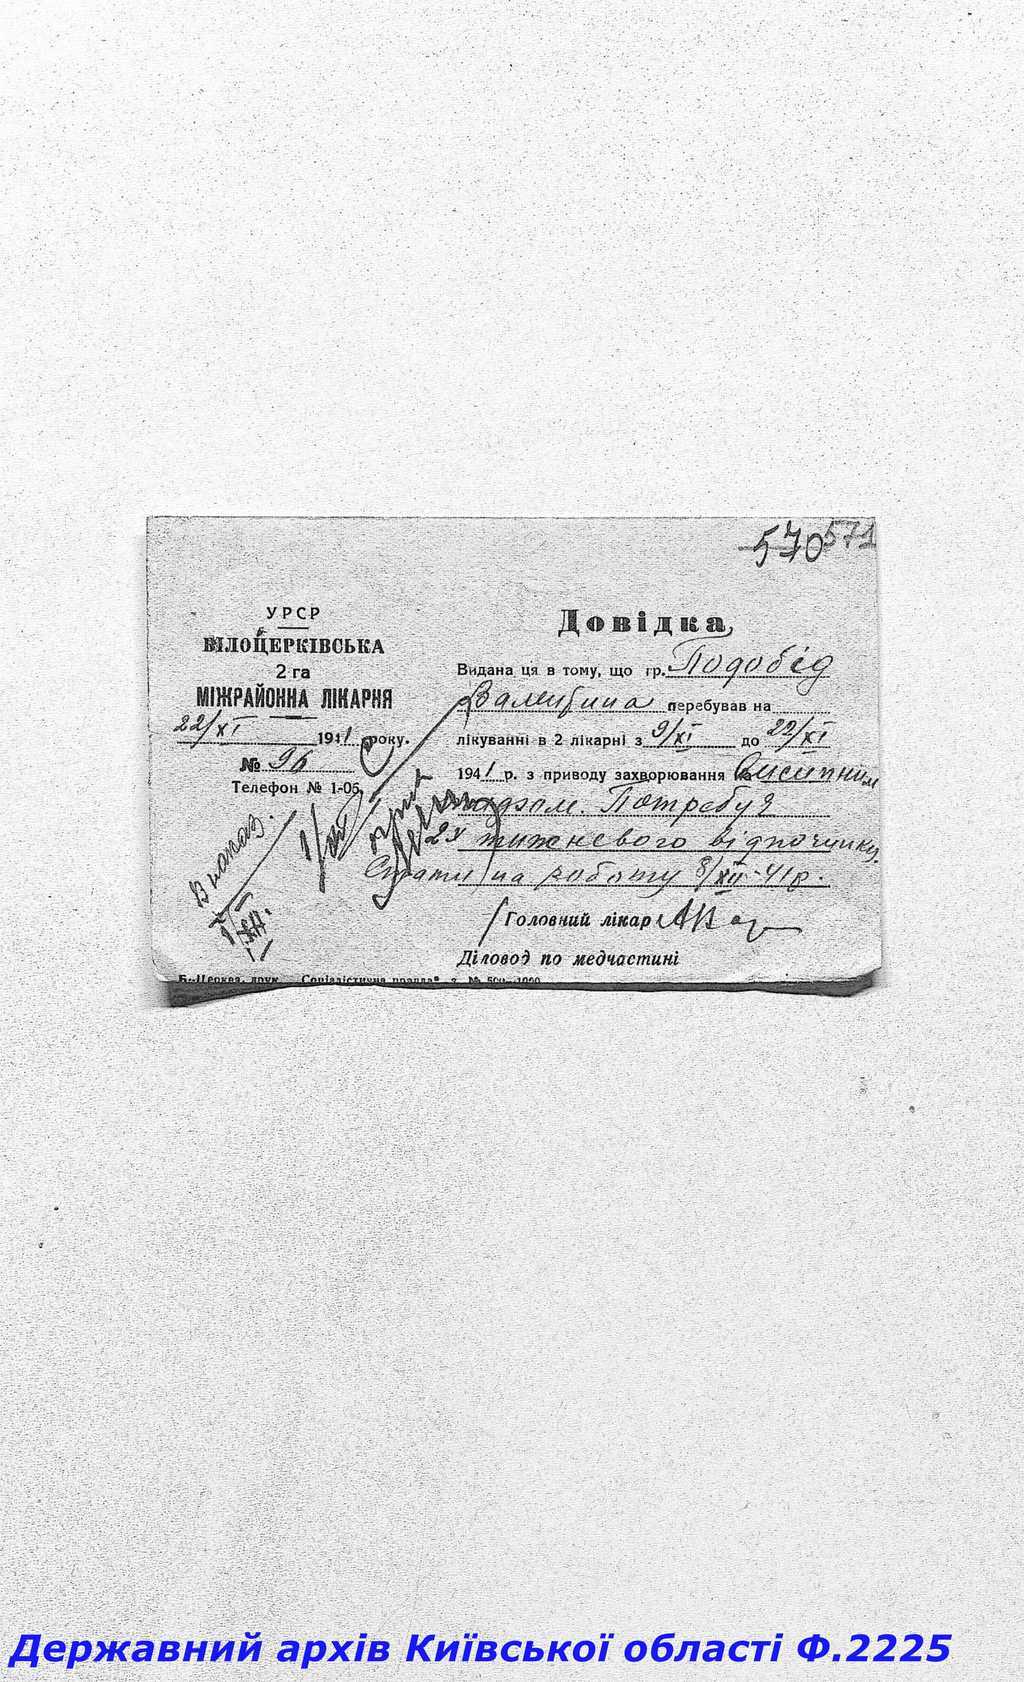 570 571
УРСР
БІЛОЦЕРКІВСЬКА
2 га
МІЖРАЙОННА ЛІКАРНЯ
22/XI 1941 року.
№ 96
Телефон № 1-05
В наказ.
1/XII
Довідка
Видана ця в тому, що гр. Подобід
Валентина перебував на
лікуванні в 2 лікарні з 9/XI до 22/XI
1941 р. з приводу захворювання на висипним
тифом. Потребує
2х тижневого відпочинку.
Стати на роботу 8/XII-41 р.
Головний лікар
Діловод по медчастині
Б.-Церква, друк. „Соціалістична правда" з. № 500—1000
Державний архів Київської області Ф.2225